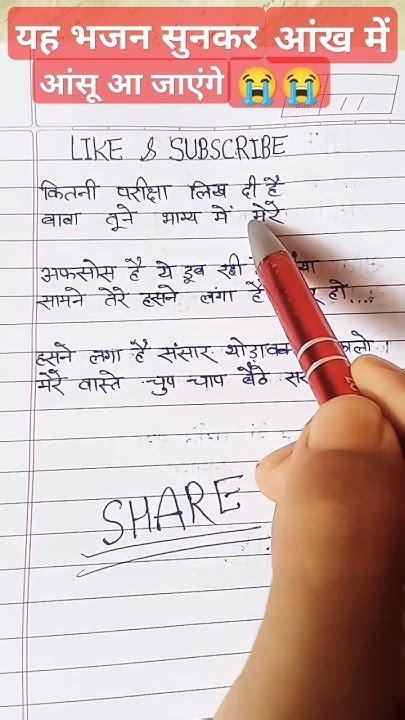 यह भजन सुनकर आंख में
आंसू आ जाएंगे 😭😭
LIKE & SUBSCRIBE
कितनी परीक्षा लिख दी है
बाबा तूने भाग्य में मेरे
अफसोस है ये डूब रही
सामने तेरे हसने लंगा है
हसने लगा है संसार थोड़ा वक्त
मेरे वास्ते चुप चाप बैठे
SHARE